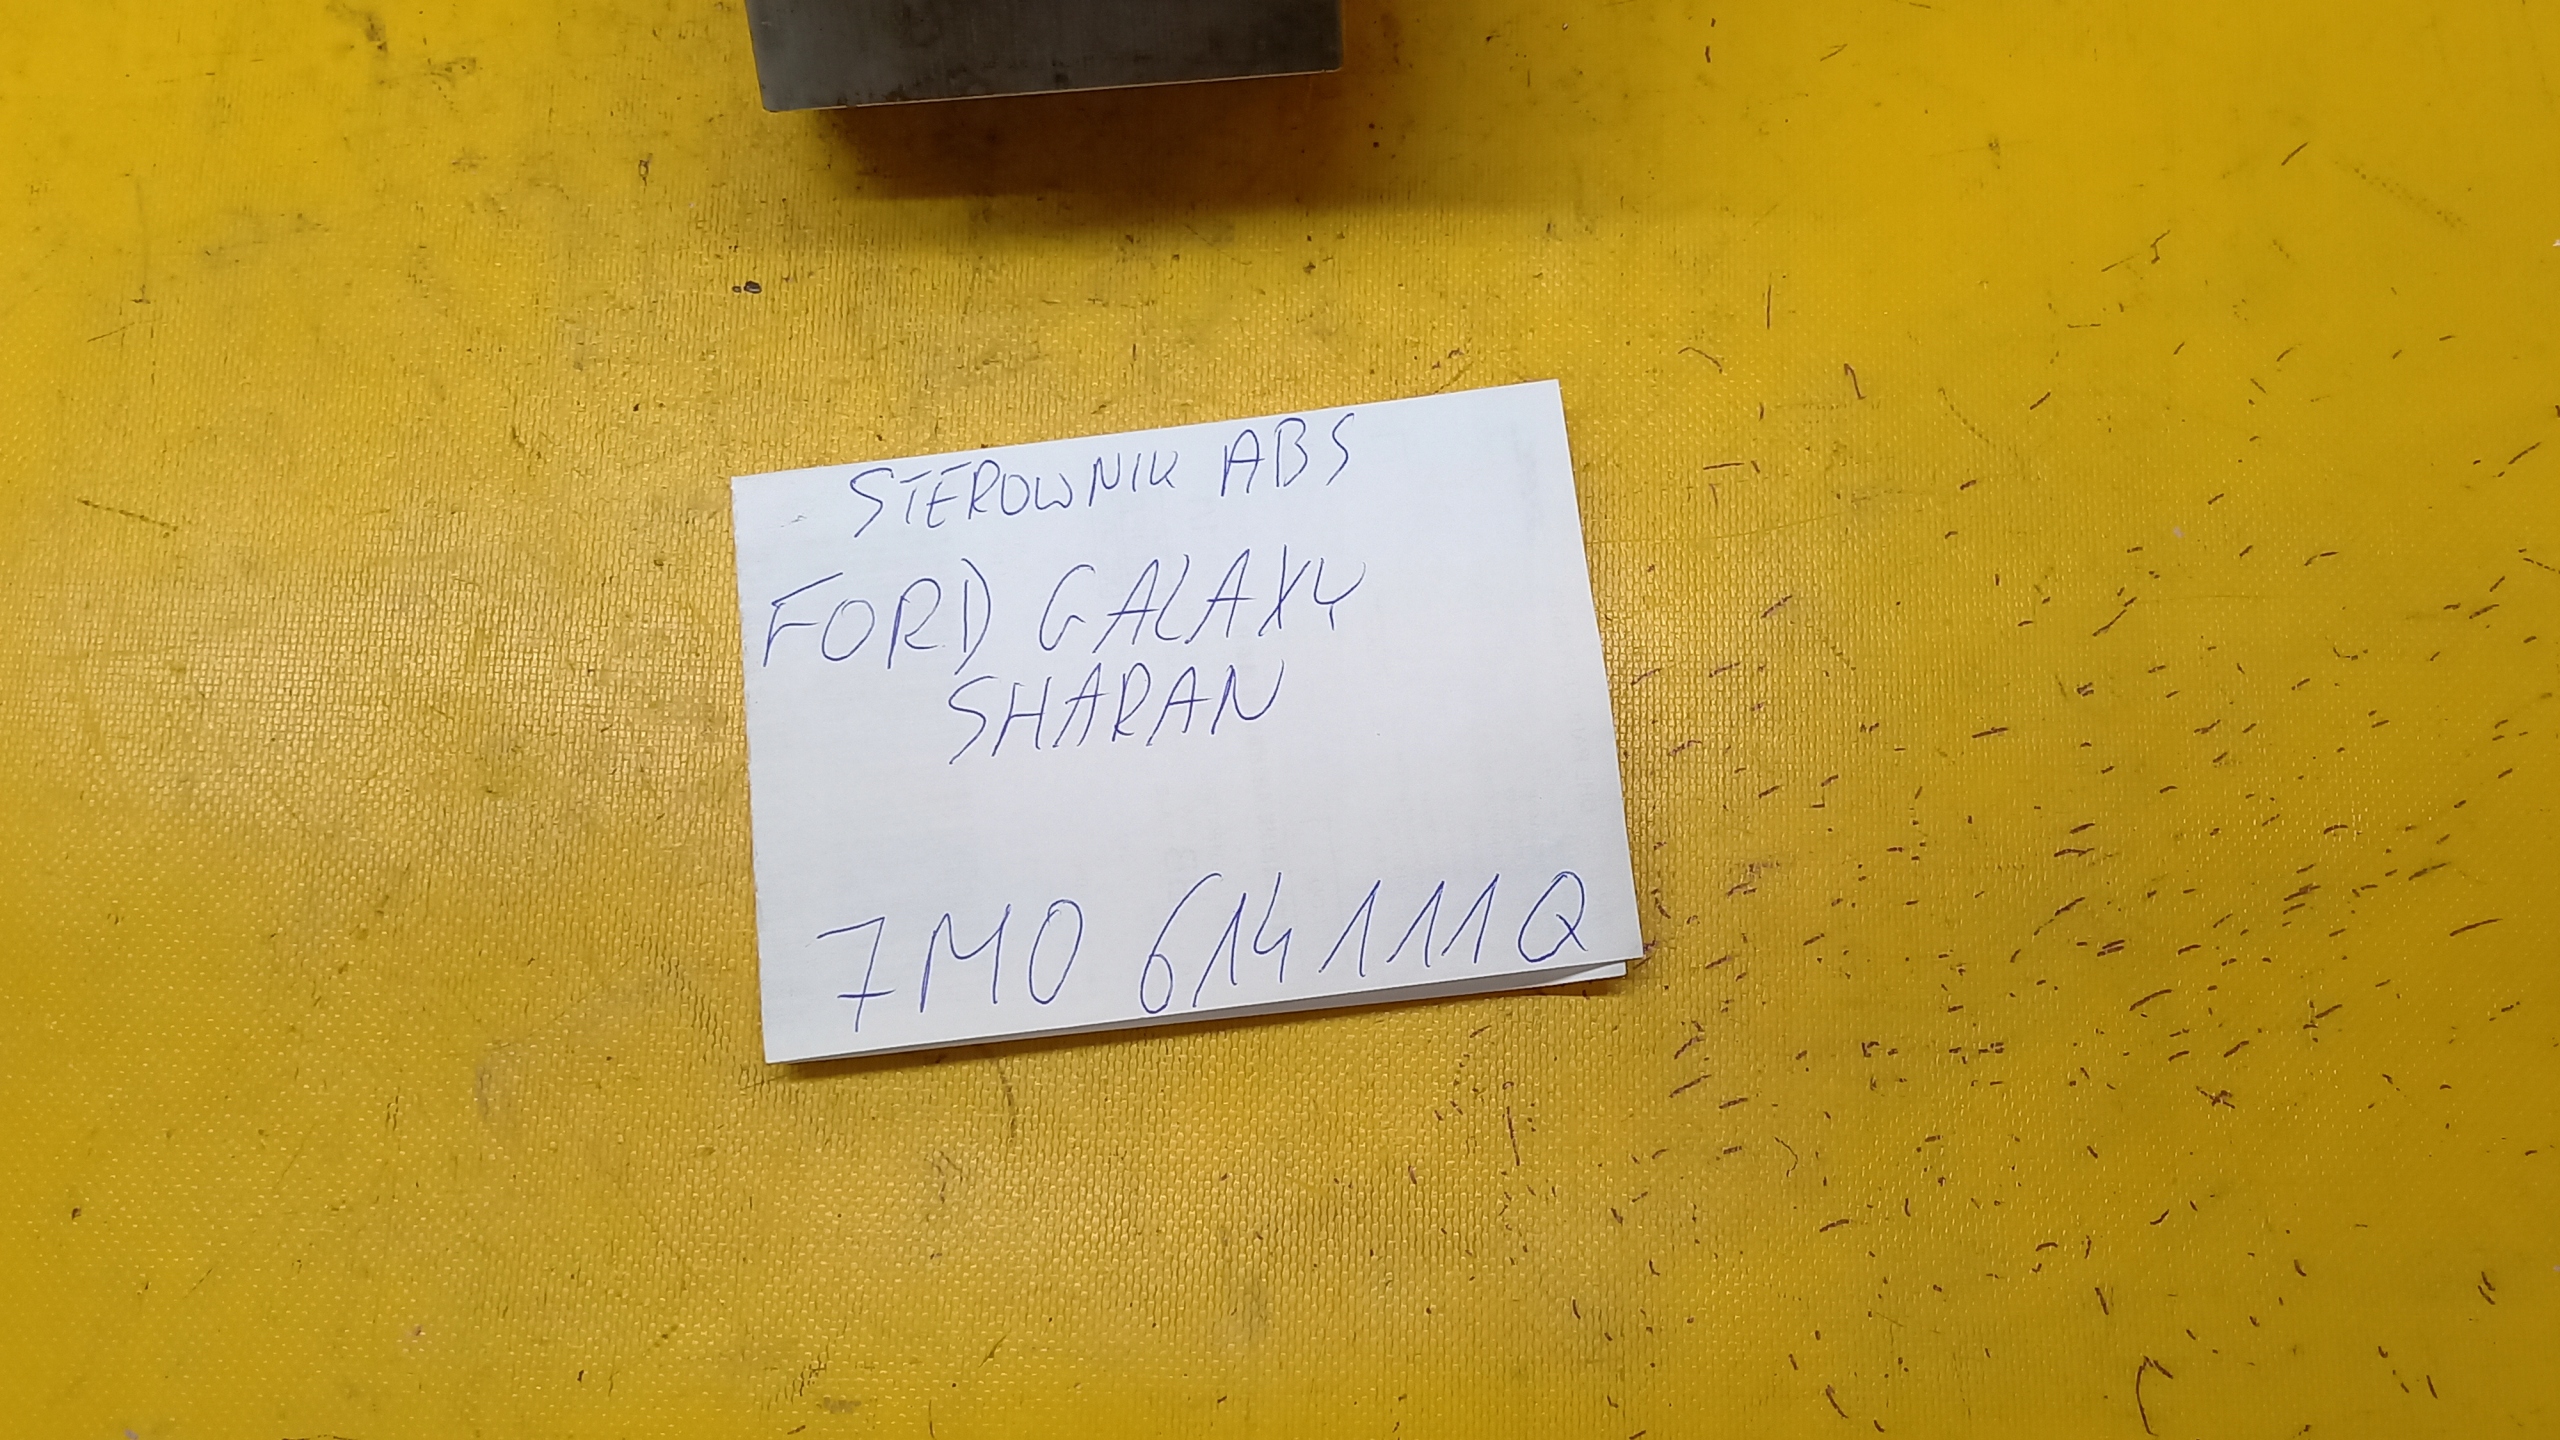 STEROWNIK ABS
FORD GALAXY
SHARAN
7M0 614 111 Q